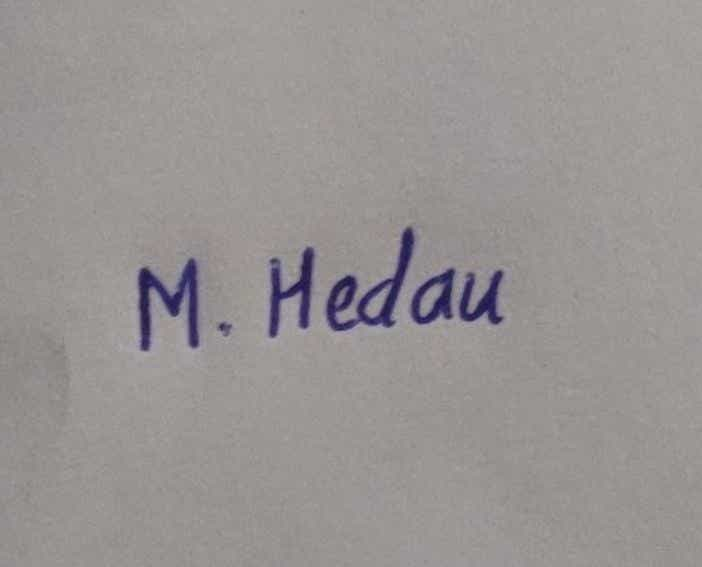 M. Hedau